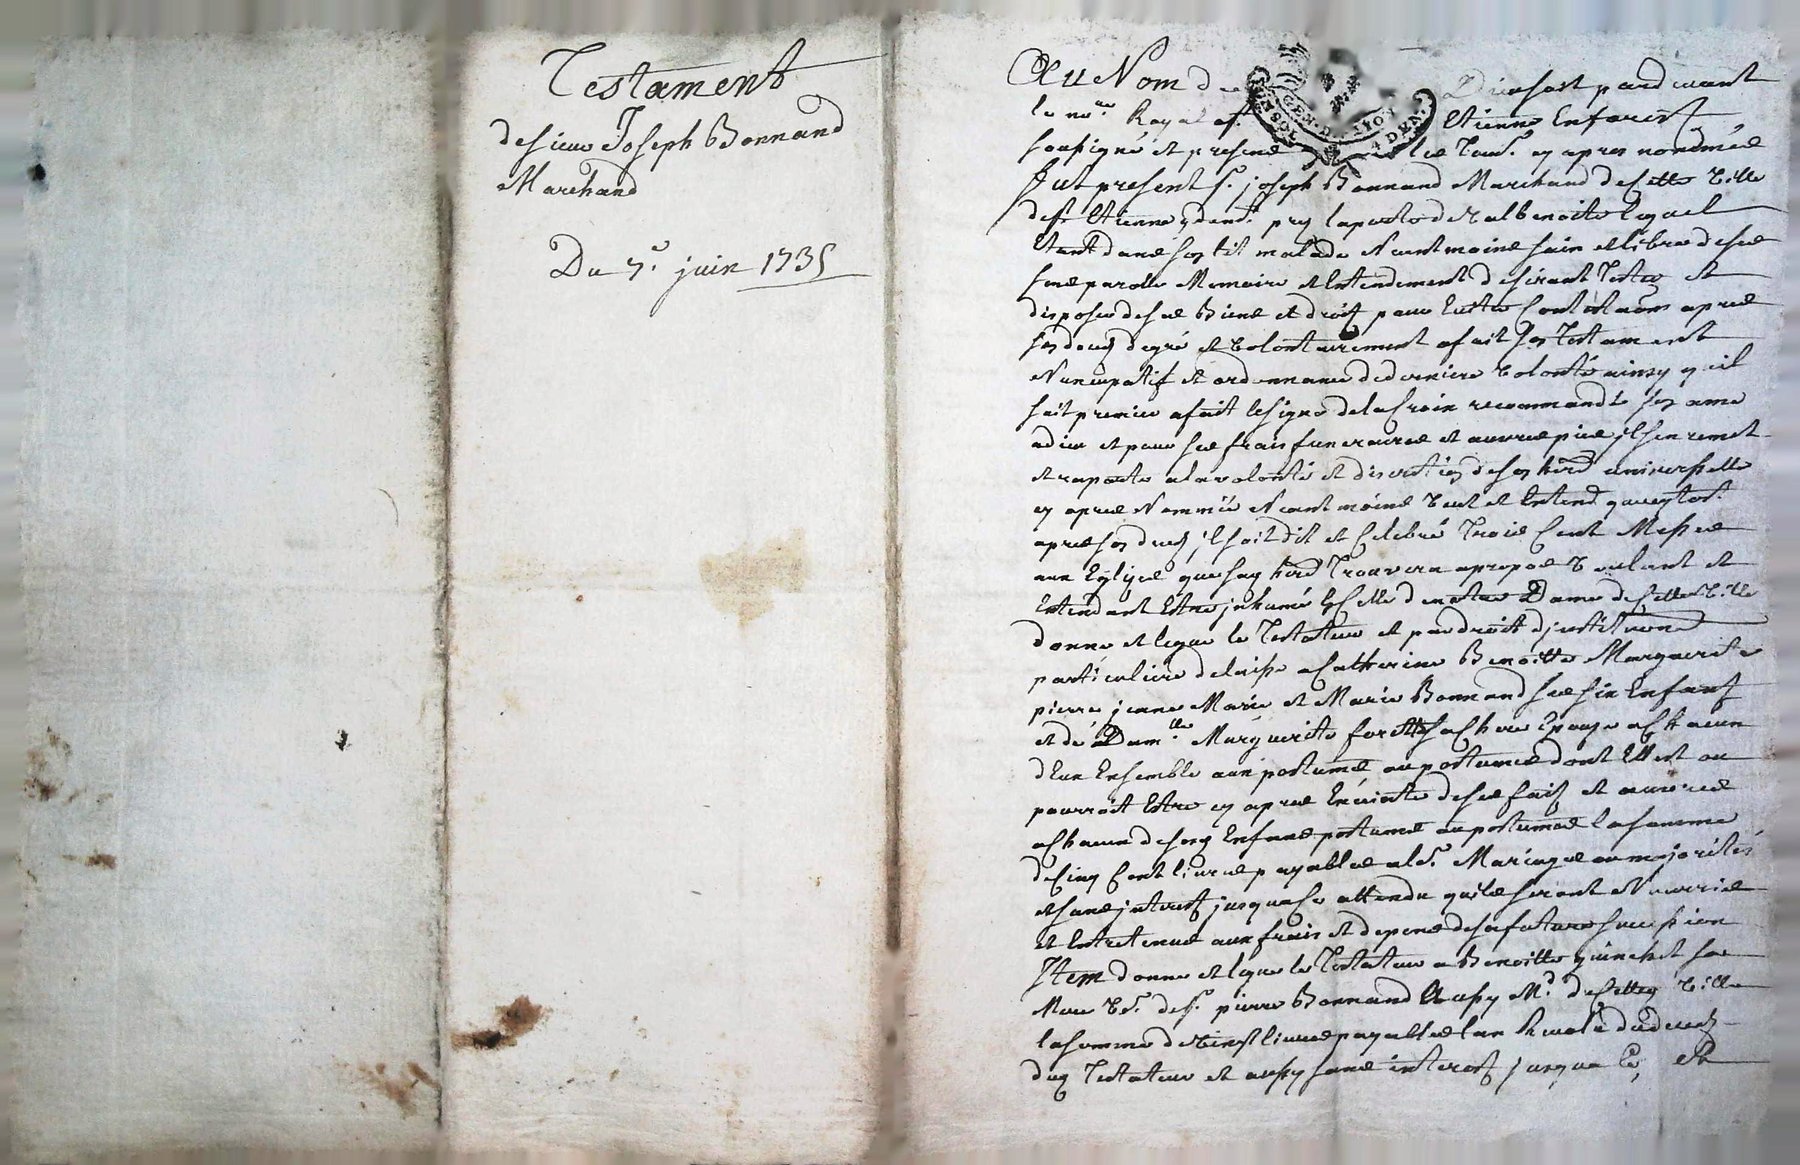 Testament
de sieur Joseph Bonnand
Marchand
Du 7.e juin 1735
Au Nom de Dieu soit pardevant
le no.re Royal a St Etienne en forest
soussigné et presens les tem.s cy apres nommés
fut present s.r joseph Bonnand Marchand de cette ville
de St Etienne y dem.t prez la porte de lequel
Etant dans son lit malade Neantmoins sain et libre de ses
sens parolle Memoire et Entendement desirant Tester et
disposer de ses Biens et droits pour Eviter Contestations apres
son deces de gré et volontairement a fait son Testament
Nuncupatif et ordonnance de derniere volonté ainsy qu'il
suit premier a fait le signe de la Croix recommandé son ame
a dieu et pour ses frais funeraires et œuvres pies il s'en remet
et raporte a la volonté et discretion de son herd universelle
cy apres Nommée Neantmoins veut et Entend
apres son deces il soit dit et Celebré Trois Cent Messes
aux Eglises que son herd Trouvera a propos voulant et
Entendant Estre inhumé En Celle de notre Dame de cette ville
donne et legue le Testateur et par droit d'institution
particuliere delaisse a Catherine Benoitte Marguerite
pierre jeanne Marie et Marie Bonnand ses six Enfants
et de Dam.lle Marguerite sa chere Epouse a Chacun
d'Eux Ensemble aux postumes ou postumes dont Elle est ou
pourroit Estre cy apres Enceinte de ses faits et œuvres
a Chacun desd Enfans postumes ou postumes la somme
de Cinq Cent livres payables a leur Mariage ou majorités
et sans interest jusqu'a ce attendu qu'ils seront Nourris
et Entretenus aux frais et depens de sa future succession
Item donne et legue le Testateur a Benoitte sa
Mere v.e de s.r pierre Bonnand Aussy M.d de cette ville
la somme de vingt livres payables l'an Revolu du deces
dud Testateur et aussy sans interest jusqua Ce, Et